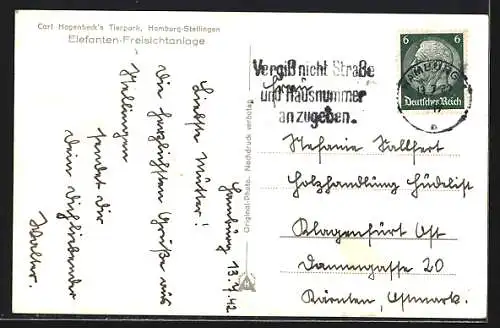 Carl Hagenbeck's Tierpark, Hamburg-Stellingen
Elefanten-Freisichtanlage
Hamburg 13.7.42
Liebste Mutter!
Die herzlichsten Grüße aus
Stellingen
sendet dir
Dein Dichliebender
Walter.
Original-Photo. Nachdruck verboten
Vergiß nicht Straße
und Hausnummer
anzugeben.
6 6
Deutsches Reich
HAMBURG
Frau
Stefanie Sallfert
Holzhandlung Hüdelist
Klagenfurt Ost
Dammgasse 20
Kärnten, Ostmark.